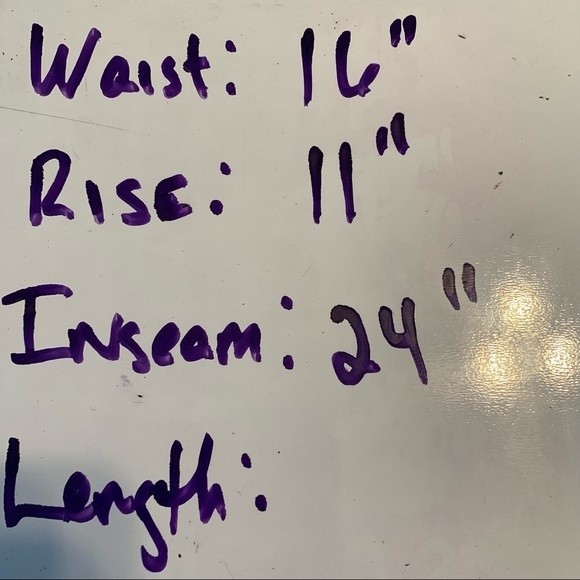 Waist: 16"
Rise: 11"
Inseam: 24"
Length: